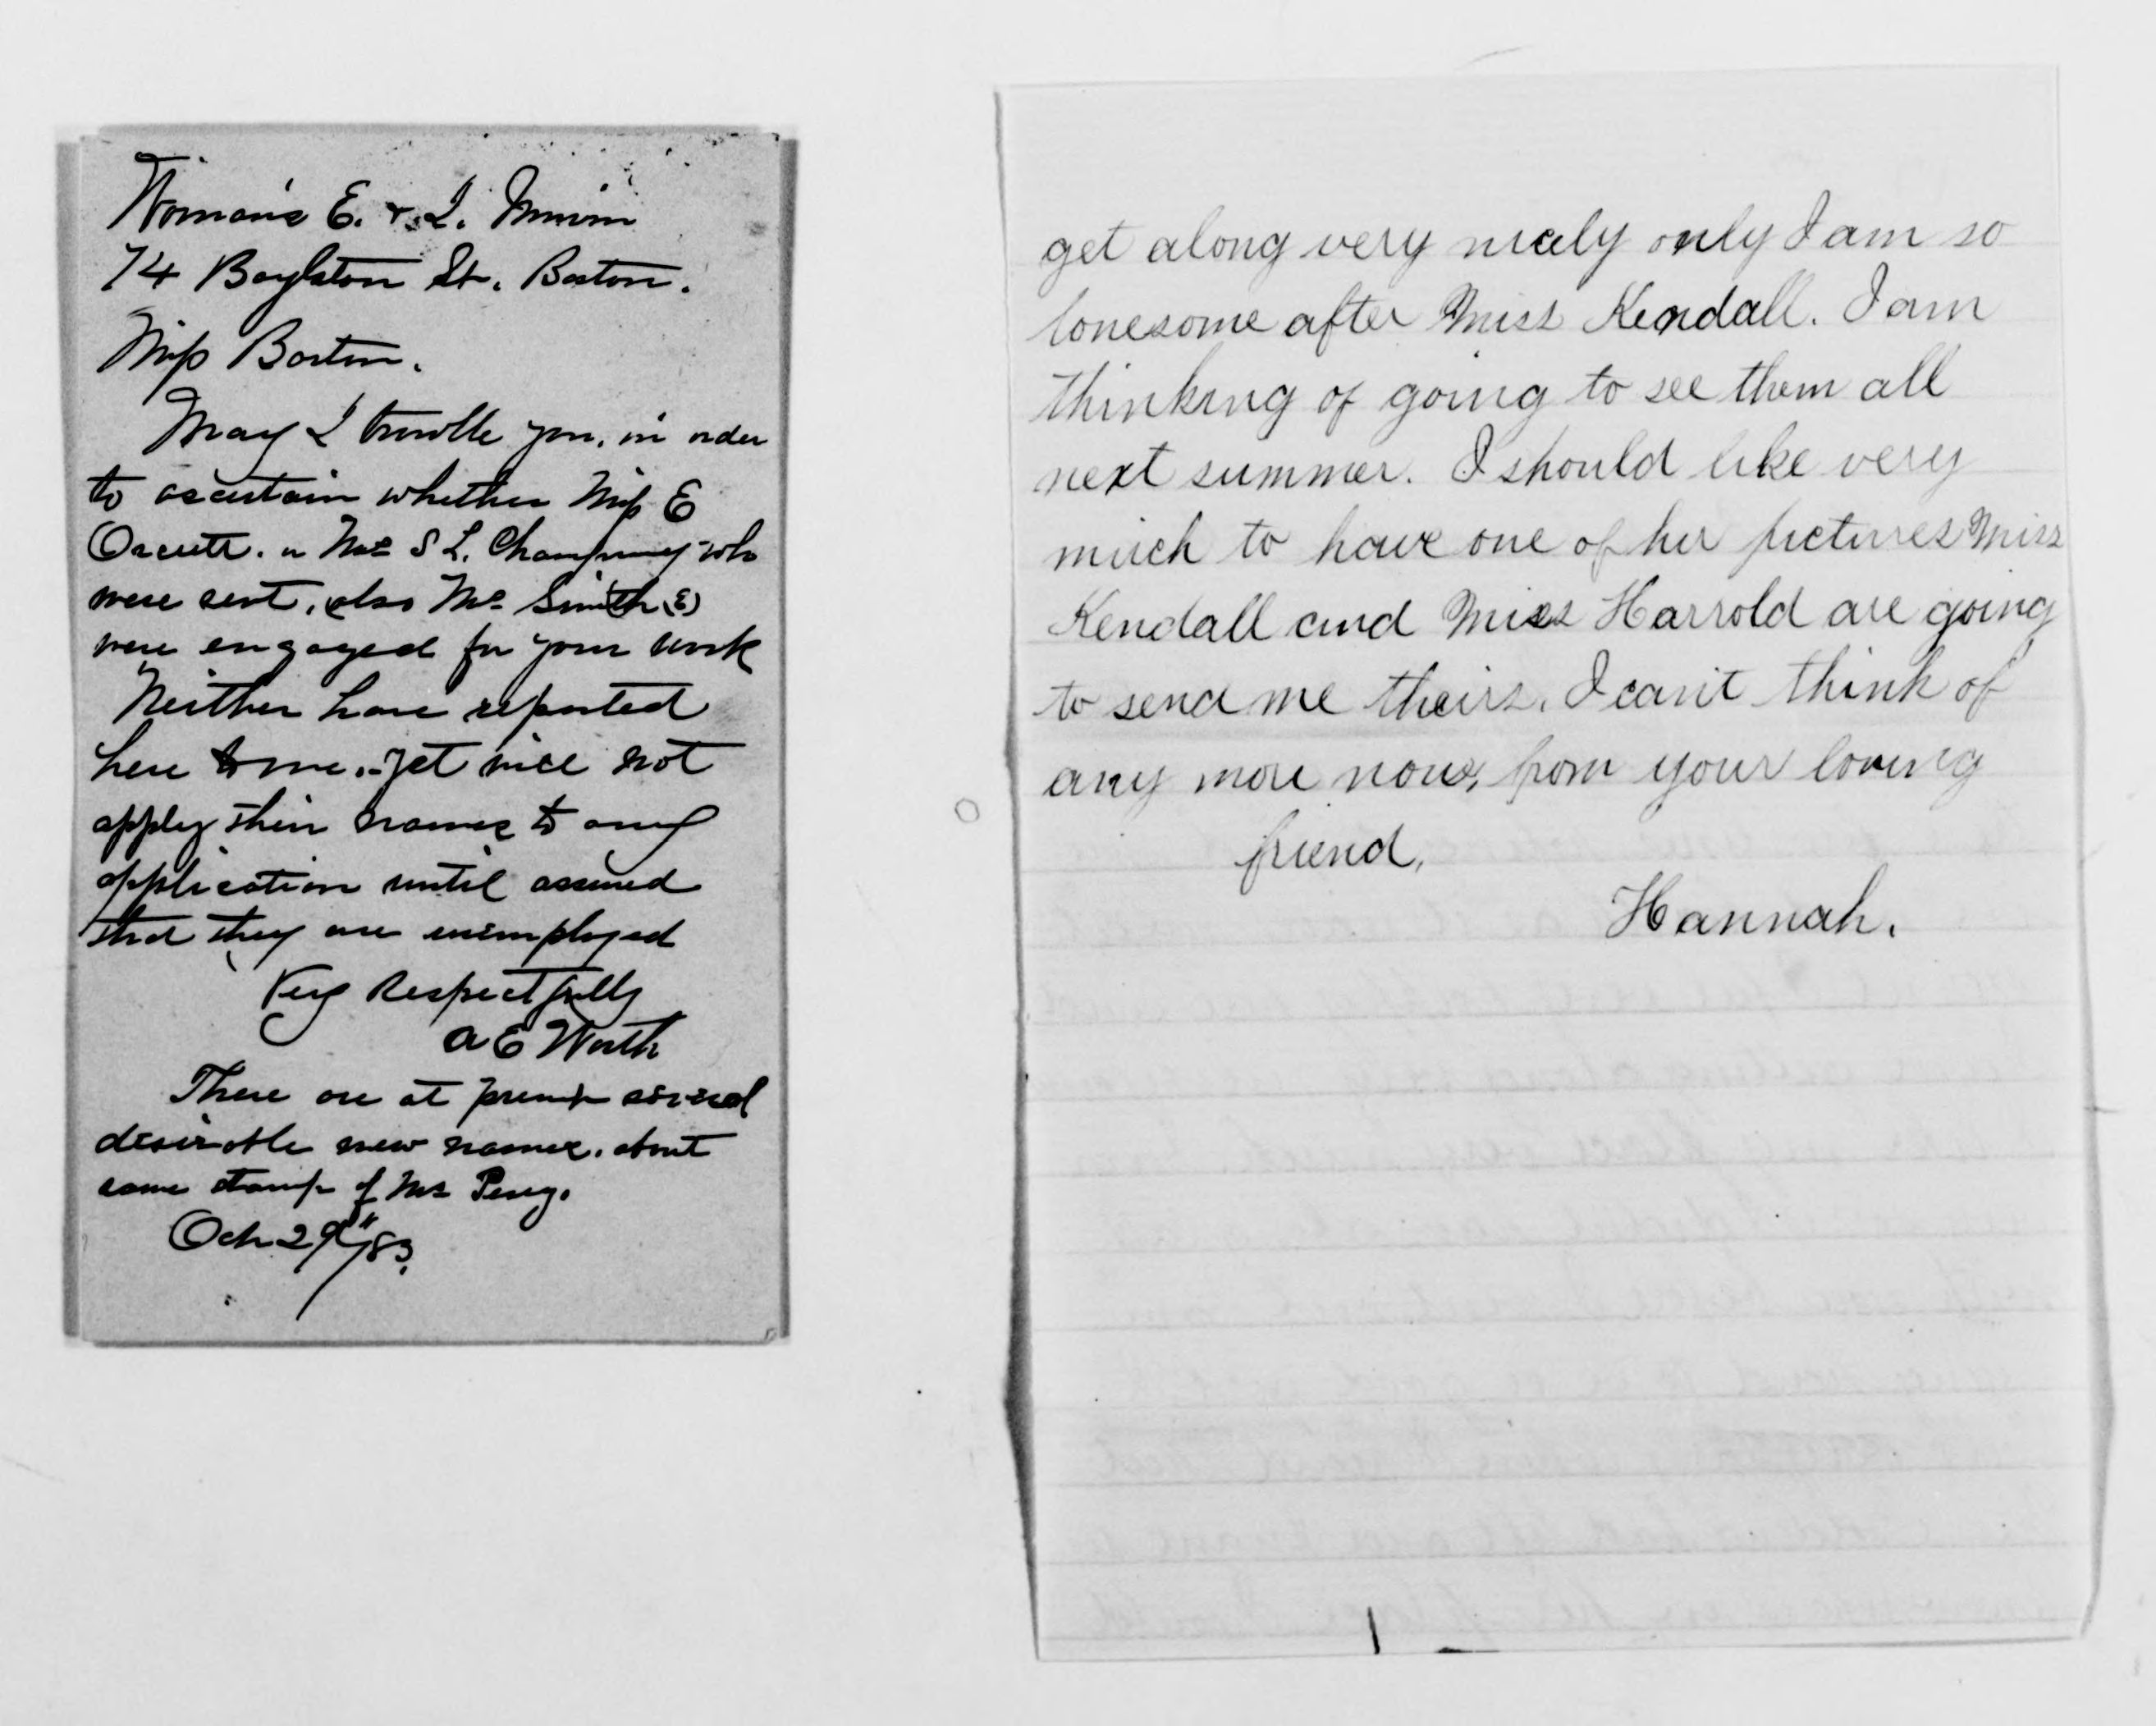 Woman's E. & I. Union
74 Boylston St. Boston.
Miss Barton.
May I trouble you, in order
to ascertain whether Miss E
Orcutt. or Mrs S L. Champney who
were sent, also Mrs Smith (E)
were engaged for your work
Neither have reported
here to me. yet will not
apply their names to any
application until assured
that they are unemployed
Very Respectfully
A E Worth
There are at present several
desirable new names. about
same stamp of Mrs Perry.
Oct 29th/83.
get along very nicely only I am so
lonesome after Miss Kendall. I am
thinking of going to see them all
next summer. I should like very
much to have one of her pictures Miss
Kendall and Miss Harrold are going
to send me theirs. I can't think of
any more now, from your loving
friend,
Hannah.